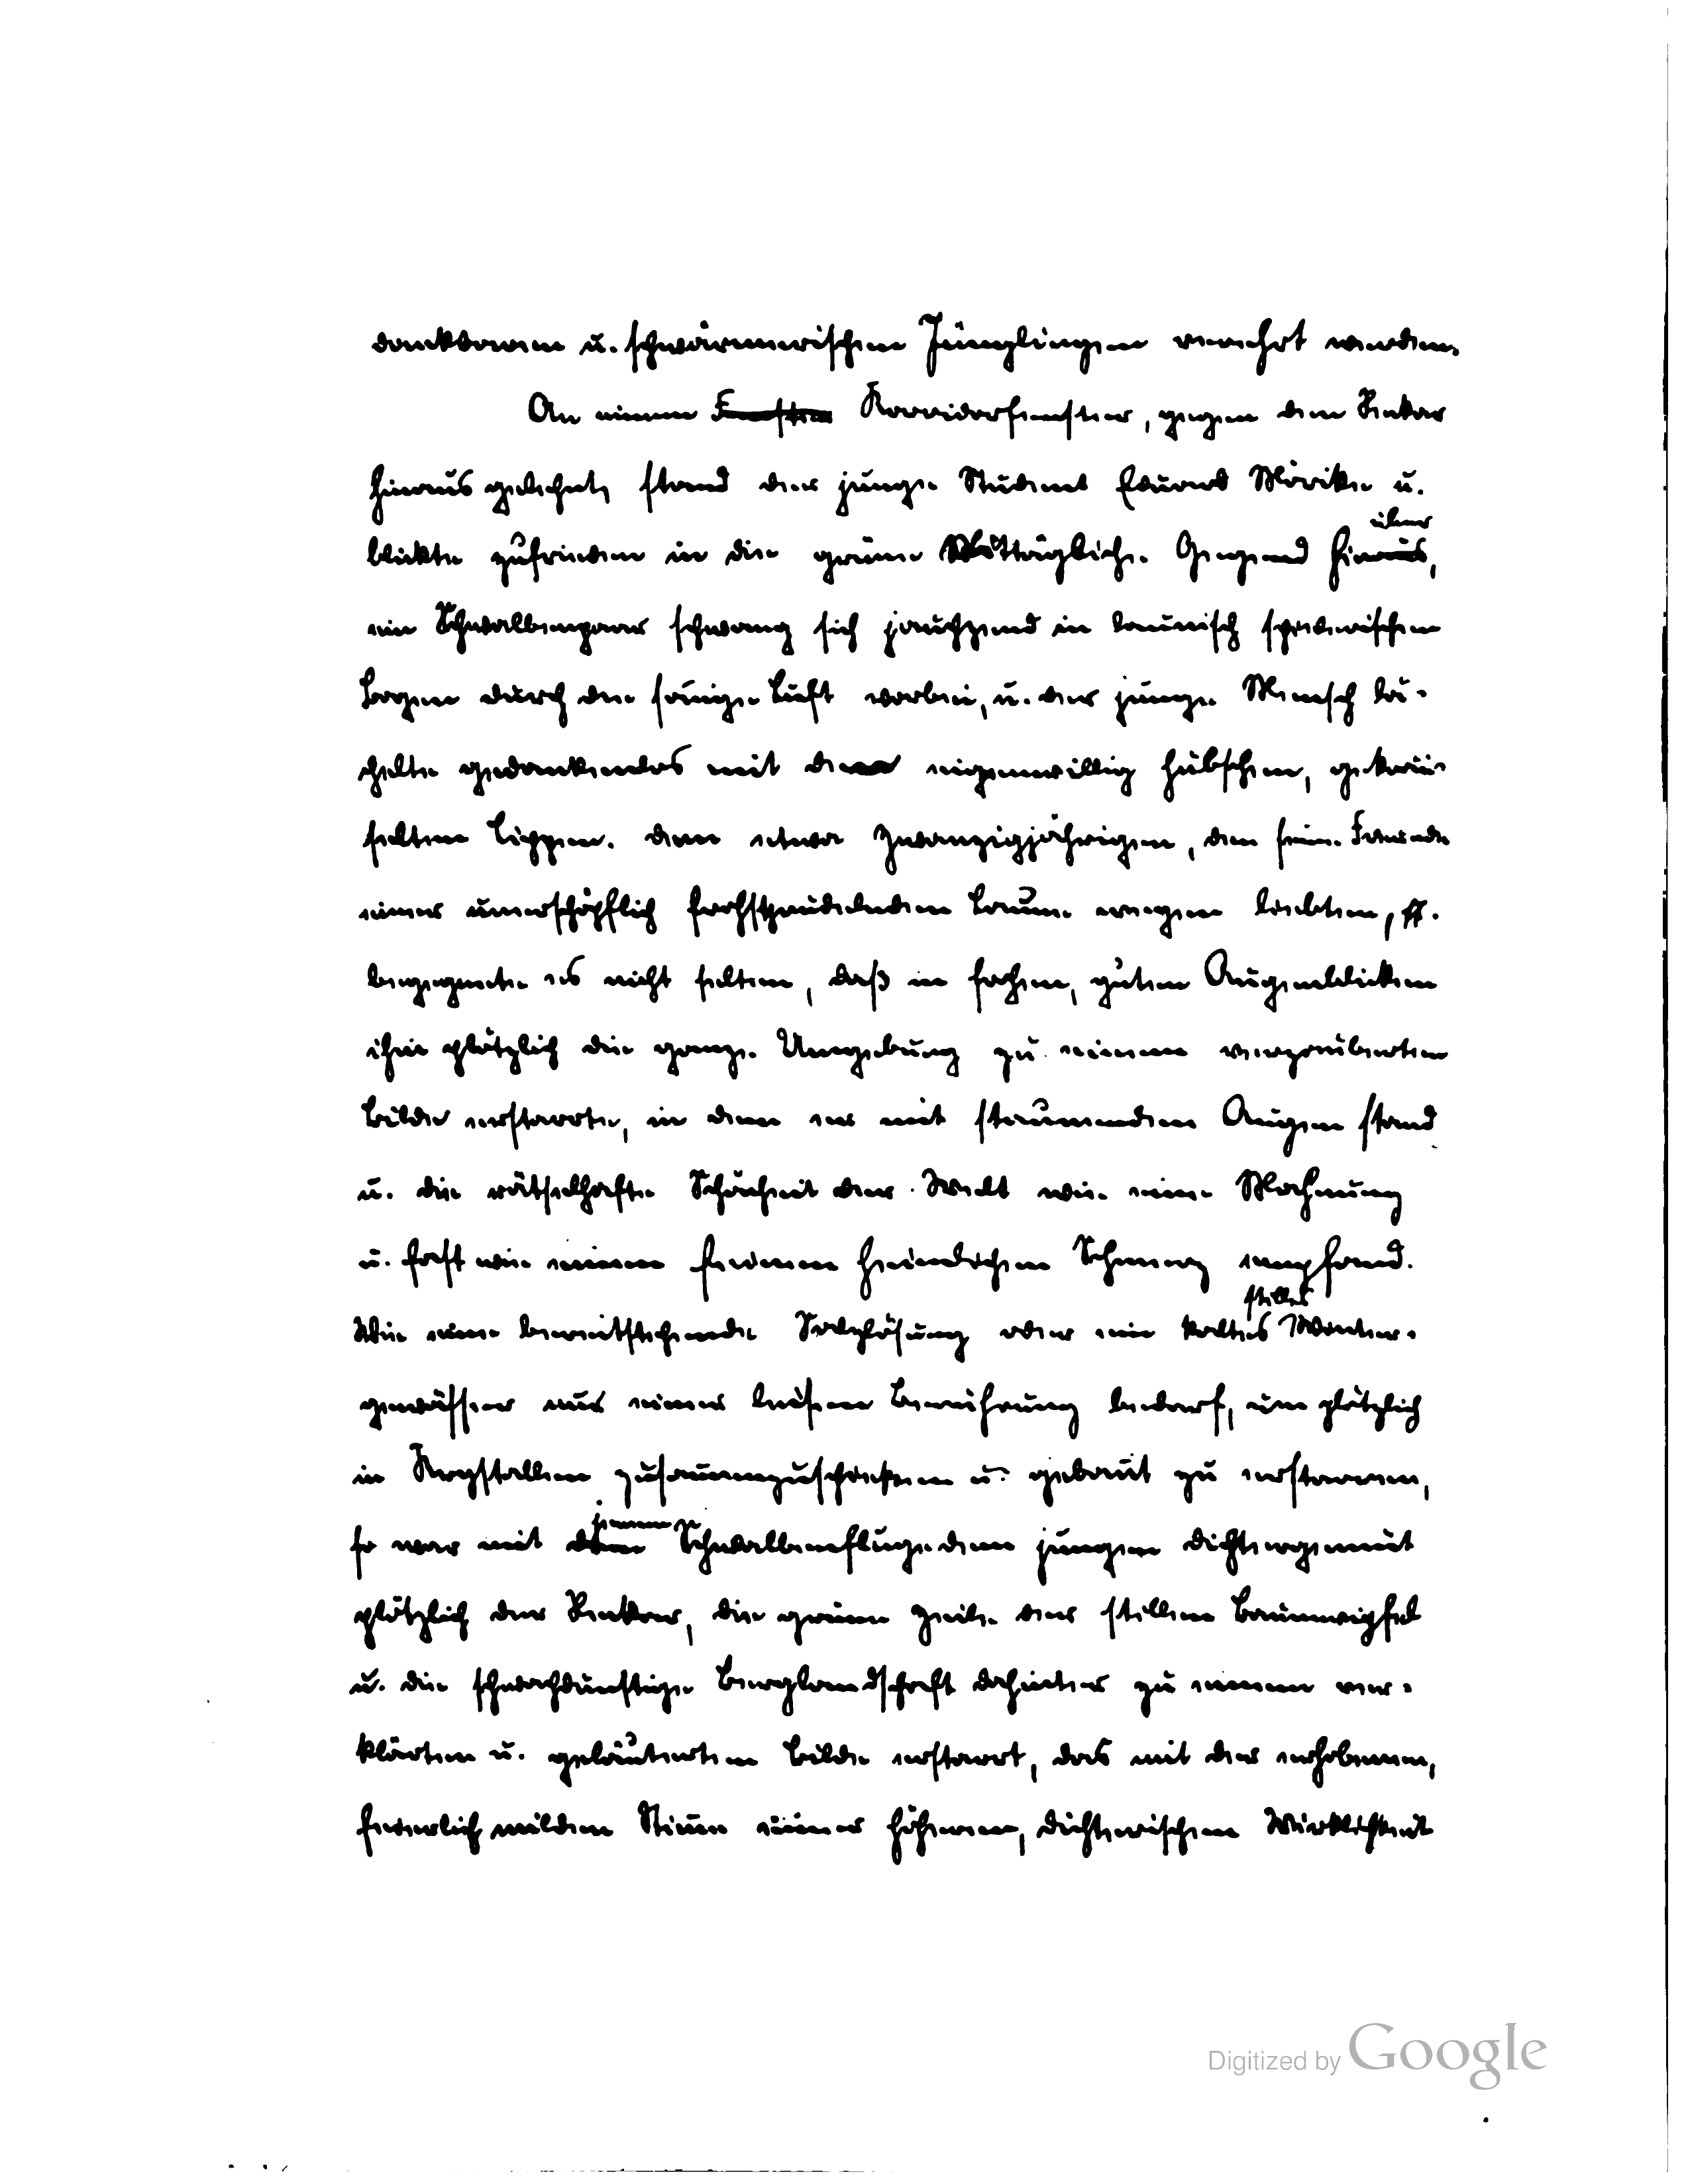 dankbaren u. schwärmerischen Jünglingen verehrt werden.
An einem Fenster Korridorfenster, gegen den Neckar
hinaus gelehnt, stand der junge Student Eduard Mörike u.
blickte zufrieden in die grüne mittägliche Gegend hinaus, über
ein Schwalbenpaar schwang sich jauchzend in launisch spielerischen
Bogen durch die sonnige Luft vorbei, u. der junge Mensch lä-
chelte gedankenlos mit den eigenwillig hübschen, gekräu-
selten Lippen. Dem etwa Zwanzigjährigen, den seine Freunde
einer unerschöpflich frohsprudelnden Laune wegen liebten,
begegnete es nicht selten, daß in frohen, guten Augenblicken
ihm plötzlich die ganze Umgebung zu einem verzauberten
Bilde erstarrte, in dem er mit staunenden Augen stand
u. die rätselhafte Schönheit der Welt wie eine Mahnung
u. fast wie einen feinen heimlichen Schmerz empfand.
Wie eine bereitstehende Salzlösung oder ein kaltes stilles Winter-
gewässer nur einer leisen Berührung bedarf, um plötzlich
in Krystallen zusammenzuschießen u. gebannt zu erstarren,
so war mit dem jenem Schwalbenfluge dem jungen Dichtergemüt
plötzlich der Neckar, die grüne Zeile der stillen Baumwipfel
u. die schwachdunstige Berglandschaft dahinter zu einem ver-
klärten u. geläuterten Bilde erstarrt, das mit der erhobenen,
feierlich milden Stimme einer höheren, dichterischen Wirklichkeit
Digitized by Google